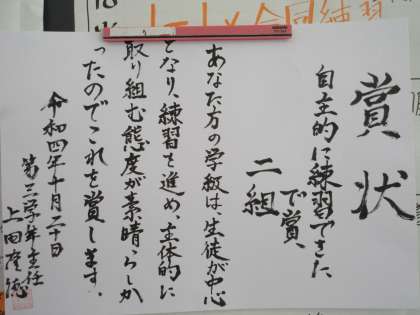 賞状
自主的に練習できた
で賞、
二組
あなた方の学級は、生徒が中心
となり、練習を進め、主体的に
取り組む態度が素晴らしか
ったのでこれを賞します。
令和四年十月二十日
第三学年主任
上田